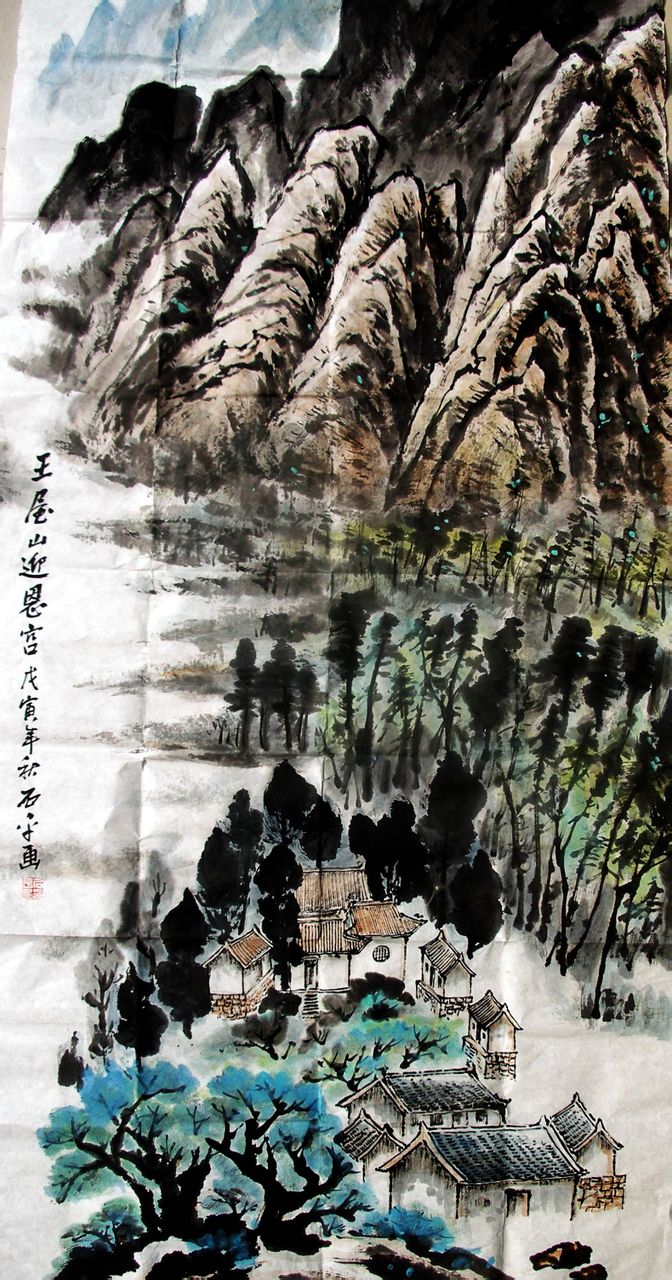 王屋山迎恩宫 戊寅年秋 石平画